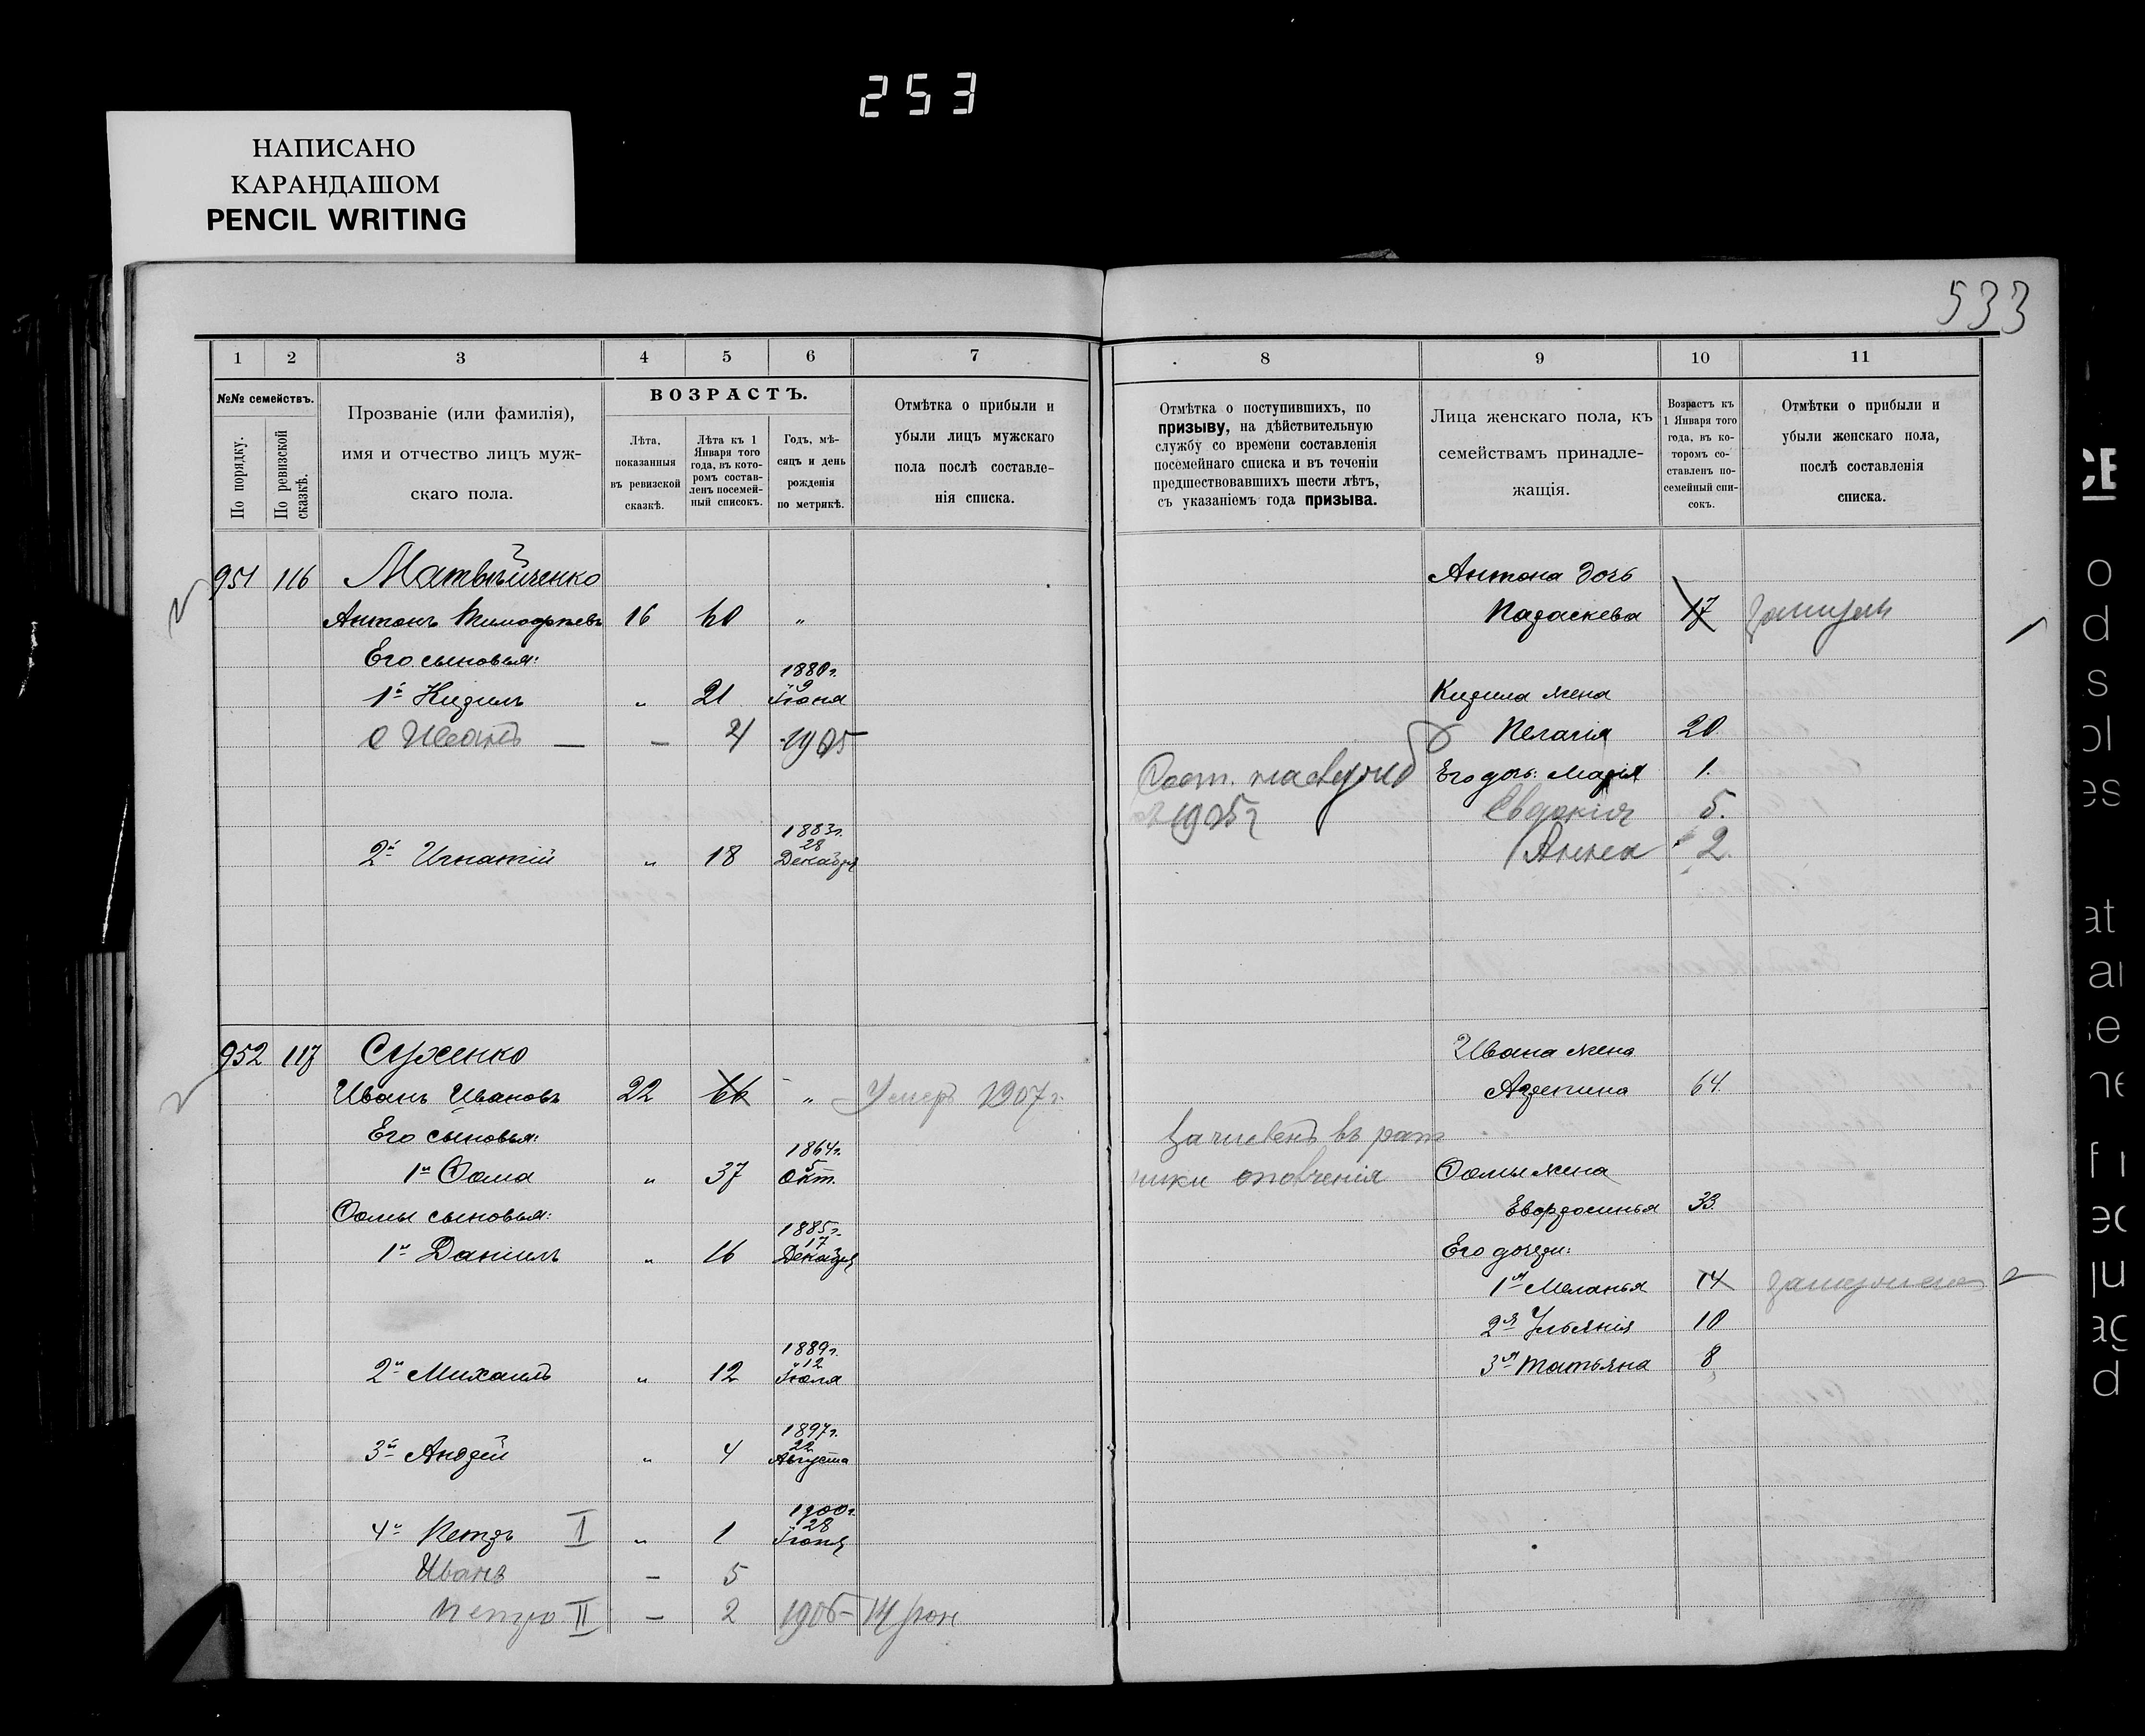 253
НАПИСАНО
КАРАНДАШОМ
PENCIL WRITING
533
1 2 3 4 5 6 7
№№ семействъ.
По порядку.
По ревизской сказкѣ.
Прозваніе (или фамилія),
имя и отчество лицъ муж-
скаго пола.
ВОЗРАСТЪ.
Лѣта,
показанныя
въ ревизской
сказкѣ.
Лѣта къ 1
Января того
года, въ кото-
ромъ состав-
ленъ посемей-
ный списокъ.
Годъ, мѣ-
сяцъ и день
рожденія
по метрикѣ.
Отмѣтка о прибыли и
убыли лицъ мужскаго
пола послѣ составле-
нія списка.
951 116 Матвѣйченко
Антонъ Тимофѣевъ 16 60 „
Его сыновья:
1880 г.
9
1й Кирилъ „ 21 Іюня
Иванъ — — 1905
1883 г.
28
2й Игнатій „ 18 Декабря
952 117 Сухенко
Иванъ Ивановъ 22 66 „ Умеръ 1907 г.
Его сыновья:
1864 г.
5
1й Ѳома „ 37 Окт.
Ѳомы сыновья:
1885 г.
17
1й Даніилъ „ 16 Декабря
1889 г.
12
2й Михаилъ „ 12 Іюля
1897 г.
22
3й Андрей „ 4 Августа
1900 г.
28
4й Петръ I „ 1 Іюня
Иванъ — 5
Петро II — 2 1906 — 14 іюн
8 9 10 11
Отмѣтка о поступившихъ, по
призыву, на дѣйствительную
службу со времени составленія
посемейнаго списка и въ теченіи
предшествовавшихъ шести лѣтъ,
съ указаніемъ года призыва.
Лица женскаго пола, къ
семействамъ принадле-
жащія.
Возрастъ къ
1 Января того
года, въ ко-
торомъ со-
ставленъ по-
семейный спи-
сокъ.
Отмѣтки о прибыли и
убыли женскаго пола,
послѣ составленія
списка.
Антона дочь
Параскева 17 замужем
Кирила жена
Пелагія 20
Его дочь: Марія 1.
1905 г Евдокія 5.
Анна 2.
Ивана жена
Агрепина 64.
Зачисленъ въ рат
ники ополченія Ѳомы жена
Евфросинья 33.
Его дочери:
1я Меланья 14
2я Ульянія 10
3я Татьяна 8